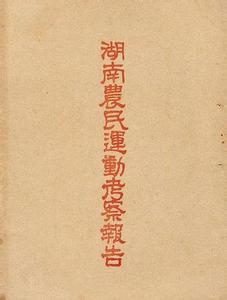 湖南農民運動考察報告